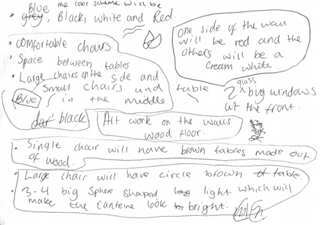 Blue the color scheme will be
grey, Black, white and Red
one side of the wall
will be red and the
others will be a
cream white
• comfortable chairs
• Space between tables
• Large chairs on the side and
small chairs and table
Blue in the middle
dar black
glass
2 big windows
at the front.
Art work on the walls
wood floor.
• Single chair will have brown tables made out
of wood.
• Large chair will have circle brown table.
• 3-4 big sphere shaped light which will
make the canteine look bright.